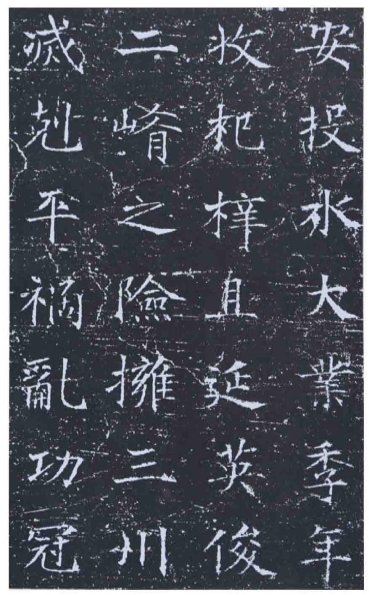 安投水大業季年
收杞梓且延英俊
二崤之險擁三州
滅剋平禍亂功冠